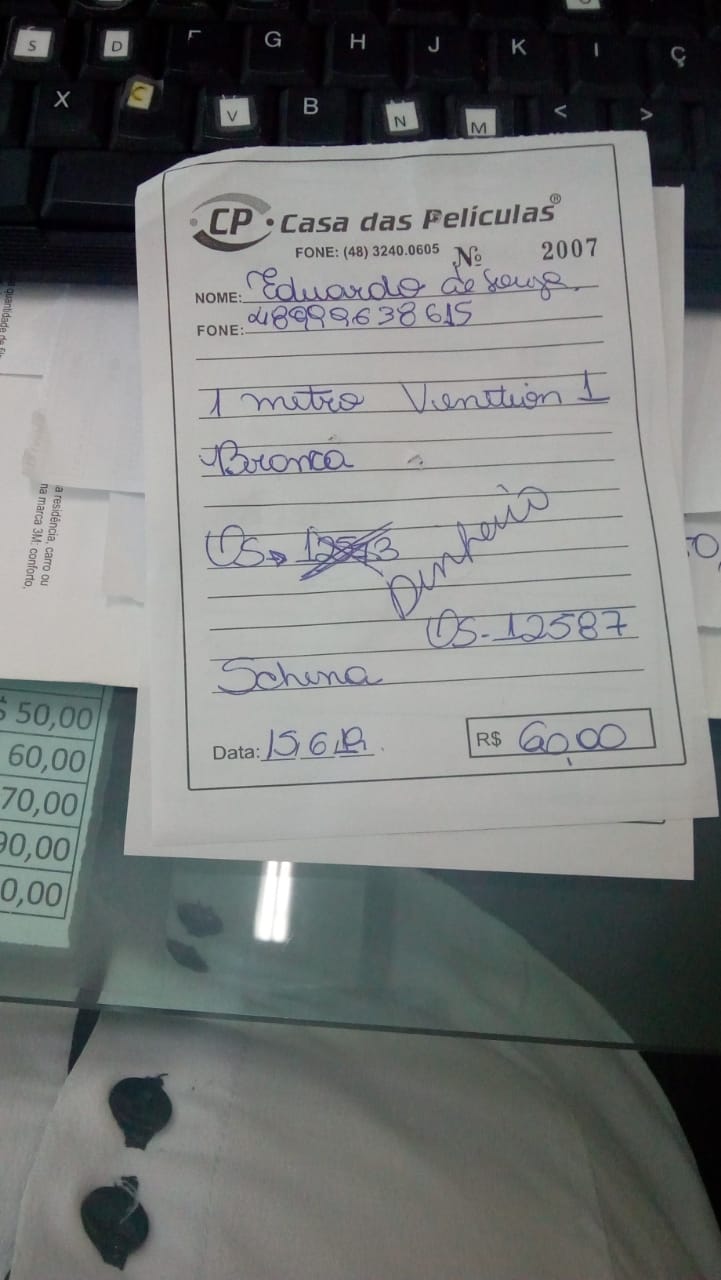 S D F G H J K Ç
X C V B N M < >
CP • Casa das Películas®
FONE: (48) 3240.0605 Nº 2007
NOME: Eduardo de Souza.
FONE: 48999638615
1 metro 1
Branca
OS
Dinheiro
OS- 12587
Schena
Data: 15 6 19
R$ 60,00
a residência, carro ou
na marca 3M: conforto,
$ 50,00
60,00
70,00
90,00
0,00